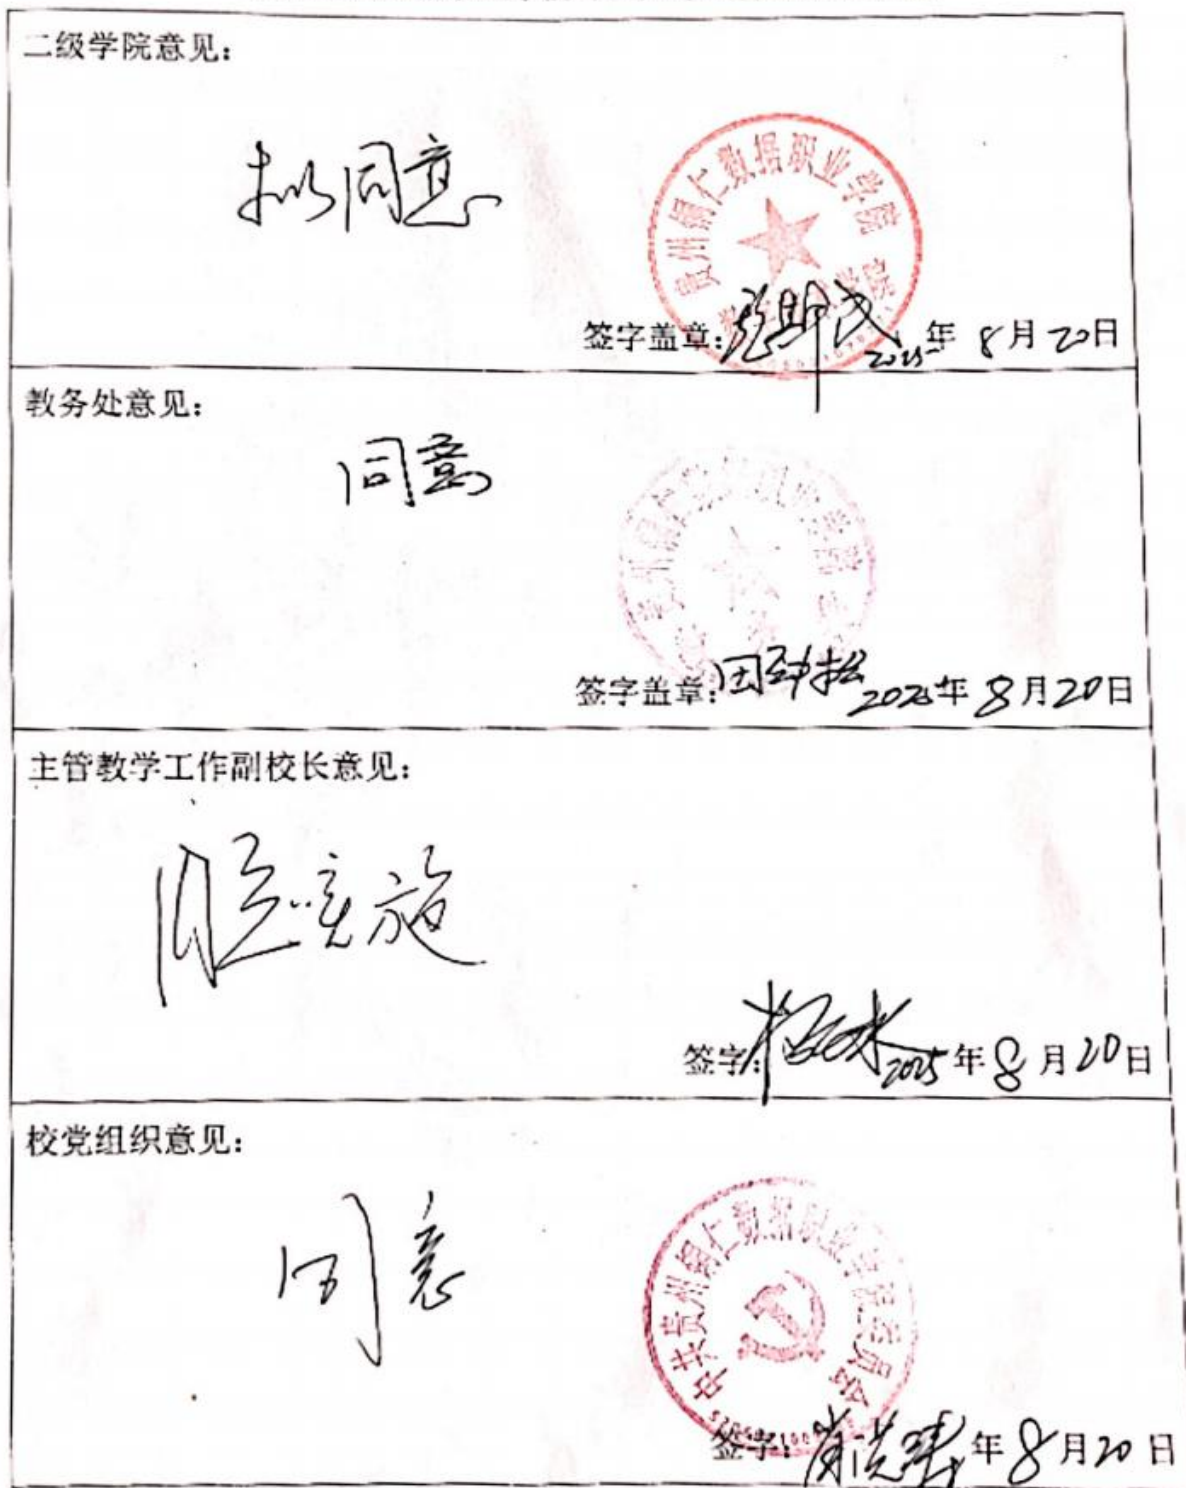 二级学院意见：
拟同意
贵州铜仁数据职业学院
签字盖章：
2025年8月20日
教务处意见：
同意
贵州铜仁数据职业学院
签字盖章：田
2025年8月20日
主管教学工作副校长意见：
同意实施
签字：
2025年8月20日
校党组织意见：
同意
中共贵州铜仁数据职业学院委员会
签字：
年8月20日